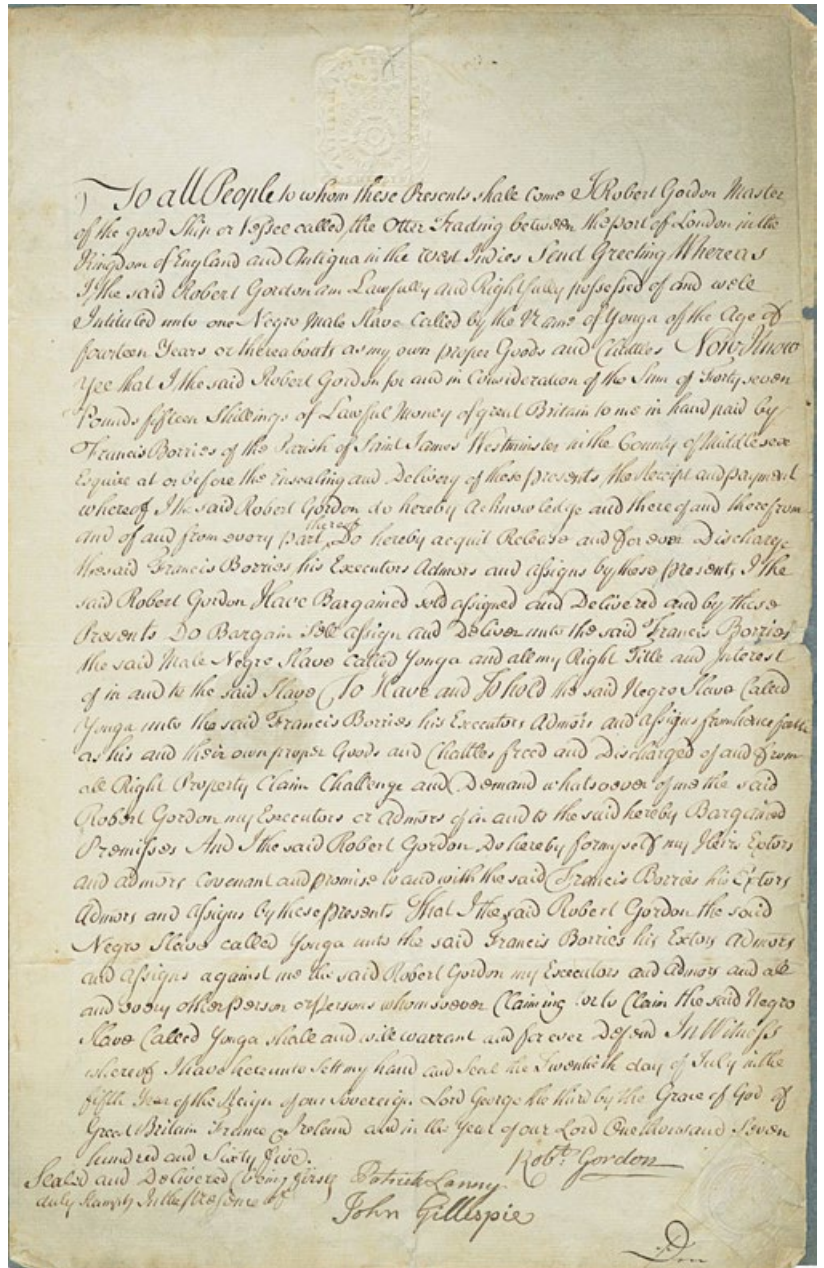 To all People to whom these Presents shall come I Robert Gordon Master
of the good Ship or Vessel called the Otter Trading between the port of London in the
Kingdom of England and Antigua in the West Indies Send Greeting Whereas
I, the said Robert Gordon am Lawfully and Rightfully possessed of and well
Intituled unto one Negro Male Slave Called by the Name of Yonga of the Age of
fourteen Years or thereabouts as my own proper Goods and Chattles Now Know
Yee that I the said Robert Gordon for and in Consideration of the Sum of Forty seven
Pounds fifteen Shillings of Lawful Money of great Britain to me in hand paid by
Francis Borries of the Parish of Saint James Westminster in the County of Middlesex
Esquire at or before the Ensealing and Delivery of these presents, the Receipt and payment
whereof I the said Robert Gordon do hereby Acknowledge and thereof and therefrom
and of and from every part thereof Do hereby acquit Release and for ever Discharge
the said Francis Borries his Executors Admors and assigns by these presents I the
said Robert Gordon Have Bargained sold assigned and Delivered and by these
Presents Do Bargain Sell assign and Deliver unto the said Francis Borries
the said Male Negro Slave called Yonga and all my Right Title and Interest
of in and to the said Slave To Have and To hold the said Negro Slave Called
Yonga unto the said Francis Borries his Executors Admors and assigns from henceforth
as his and their own proper Goods and Chattles freed and Discharged of and from
all Right Property Claim Challenge and Demand whatsoever of me the said
Robert Gordon my Executors or Admors of in and to the said hereby Bargained
Premisses And I the said Robert Gordon Do hereby for myself my Heirs Extors
and admors Covenant and promise to and with the said Francis Borries his Extors
Admors and assigns by these presents That I the said Robert Gordon the said
Negro Slave called Yonga unto the said Francis Borries his Extors Admors
and assigns against me the said Robert Gordon my Executors and Admors and all
and every other person or persons whomsoever Claiming or to Claim the said Negro
Slave Called Yonga shall and will warrant and for ever Defend In Witness
whereof I have hereunto sett my hand and Seal the Twentieth day of July in the
fifth Year of the Reign of our Sovereign Lord George the third by the Grace of God of
Great Britain France & Ireland and in the Year of our Lord One thousand Seven
hundred and Sixty five.
Robt. Gordon
Sealed and Delivered (being first
duly Stampt) In the Presence of
Patrick Lanny
John Gillespie